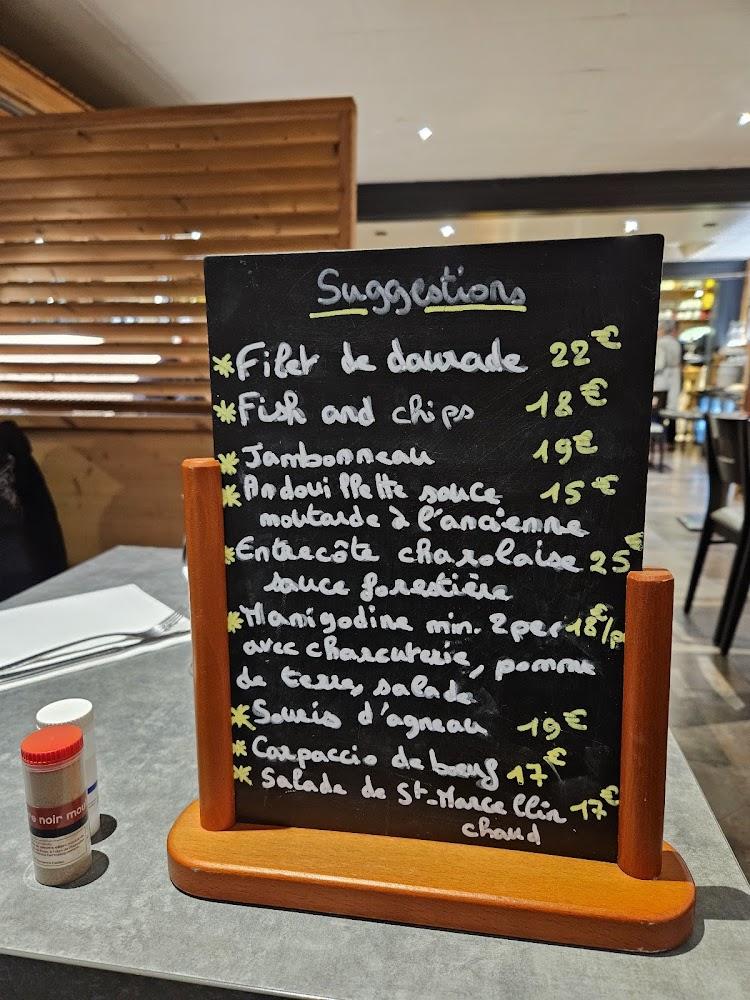 Suggestions
* Filet de dourade 22€
* Fish and chips 18€
* Jambonneau 19€
* Andouillette sauce 15€
moutarde à l'ancienne
* Entrecôte charolaise 25€
sauce forestière
* Manigodine min. 2 per 18€/p
avec charcuterie, pomme
de terre, salade
* Souris d'agneau 19€
* Carpaccio de bœuf 17€
* Salade de St-Marcellin 17€
chaud
e noir mou